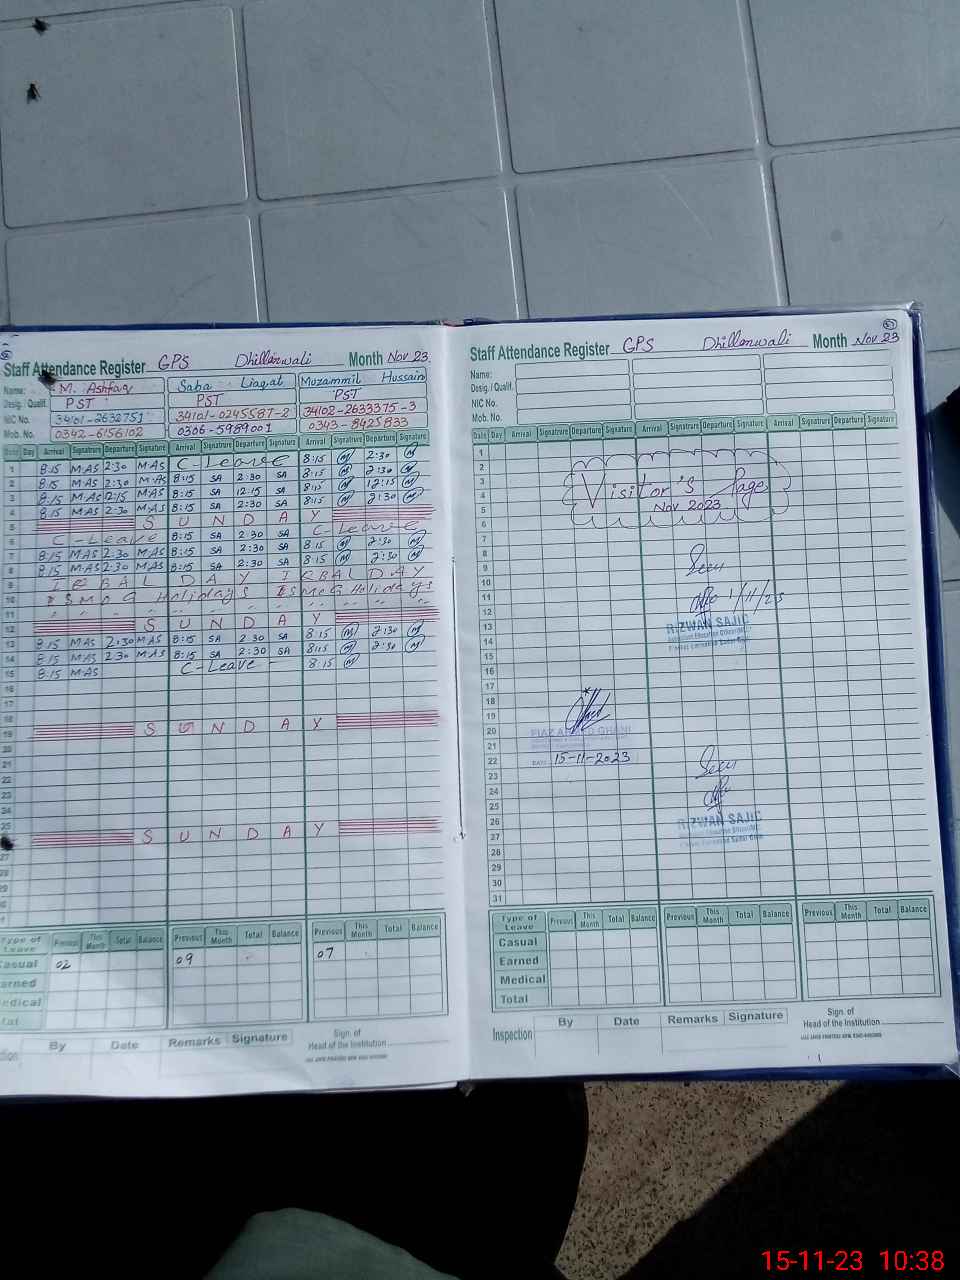 Staff Attendance Register GPS Dhillanwali Month Nov 23
Name: M. Ashfaq Saba Liaqat Mozammil Hussain
Desig. / Qualif. PST PST PST
NIC No. 34101-2632751 34101-0245587-2 34102-2633375-3
Mob. No. 0342-6156102 0306-5989001 0343-8425833
Date Day Arrival Signature Departure Signature Arrival Signature Departure Signature Arrival Signature Departure Signature
1 8:15 MAS 2:30 MAS C-Leave 8:15 M 2:30 M
2 8:15 MAS 2:30 MAS 8:15 SA 2:30 SA 8:15 M 2:30 M
3 8:15 MAS 12:15 MAS 8:15 SA 12:15 SA 8:15 M 12:15 M
4 8:15 MAS 2:30 MAS 8:15 SA 2:30 SA 8:15 M 2:30 M
5 S U N D A Y
6 C-Leave 8:15 SA 2:30 SA C Leave
7 8:15 MAS 2:30 MAS 8:15 SA 2:30 SA 8:15 M 2:30 M
8 8:15 MAS 2:30 MAS 8:15 SA 2:30 SA 8:15 M 2:30 M
9 IQBAL DAY IQBAL DAY
10 SMOG Holidays SMOG Holidays
11 " " " " " " " " " "
12 S U N D A Y
13 8:15 MAS 2:30 MAS 8:15 SA 2:30 SA 8:15 M 2:30 M
14 8:15 MAS 2:30 MAS 8:15 SA 2:30 SA 8:15 M 2:30 M
15 8:15 MAS C-Leave 8:15 M
16
17
18
19 S U N D A Y
20
21
22
23
24
25
S U N D A Y
27
28
29
Type of Leave Previous This Month Total Balance Previous This Month Total Balance Previous This Month Total Balance
Casual 02 09 07
Earned
Medical
Total
By Date Remarks Signature Sign. of
Head of the Institution
Staff Attendance Register GPS Dhillanwali Month Nov 23
Name:
Desig. / Qualif.
NIC No.
Mob. No.
Date Day Arrival Signature Departure Signature Arrival Signature Departure Signature Arrival Signature Departure Signature
1
2
3
4
5
6
7
8
9
10
11
12
13
14
15
16
17
18
19
20
21
22
23
24
25
26
27
28
29
30
31
Visitor's Page
Nov 2023
Seen
1/11/23
RIZWAN SAJID
FIAZ AHMED GHANI
DATE 15-11-2023
Seen
RIZWAN SAJID
Type of Leave Previous This Month Total Balance Previous This Month Total Balance Previous This Month Total Balance
Casual
Earned
Medical
Total
Inspection By Date Remarks Signature Sign. of
Head of the Institution
15-11-23 10:38